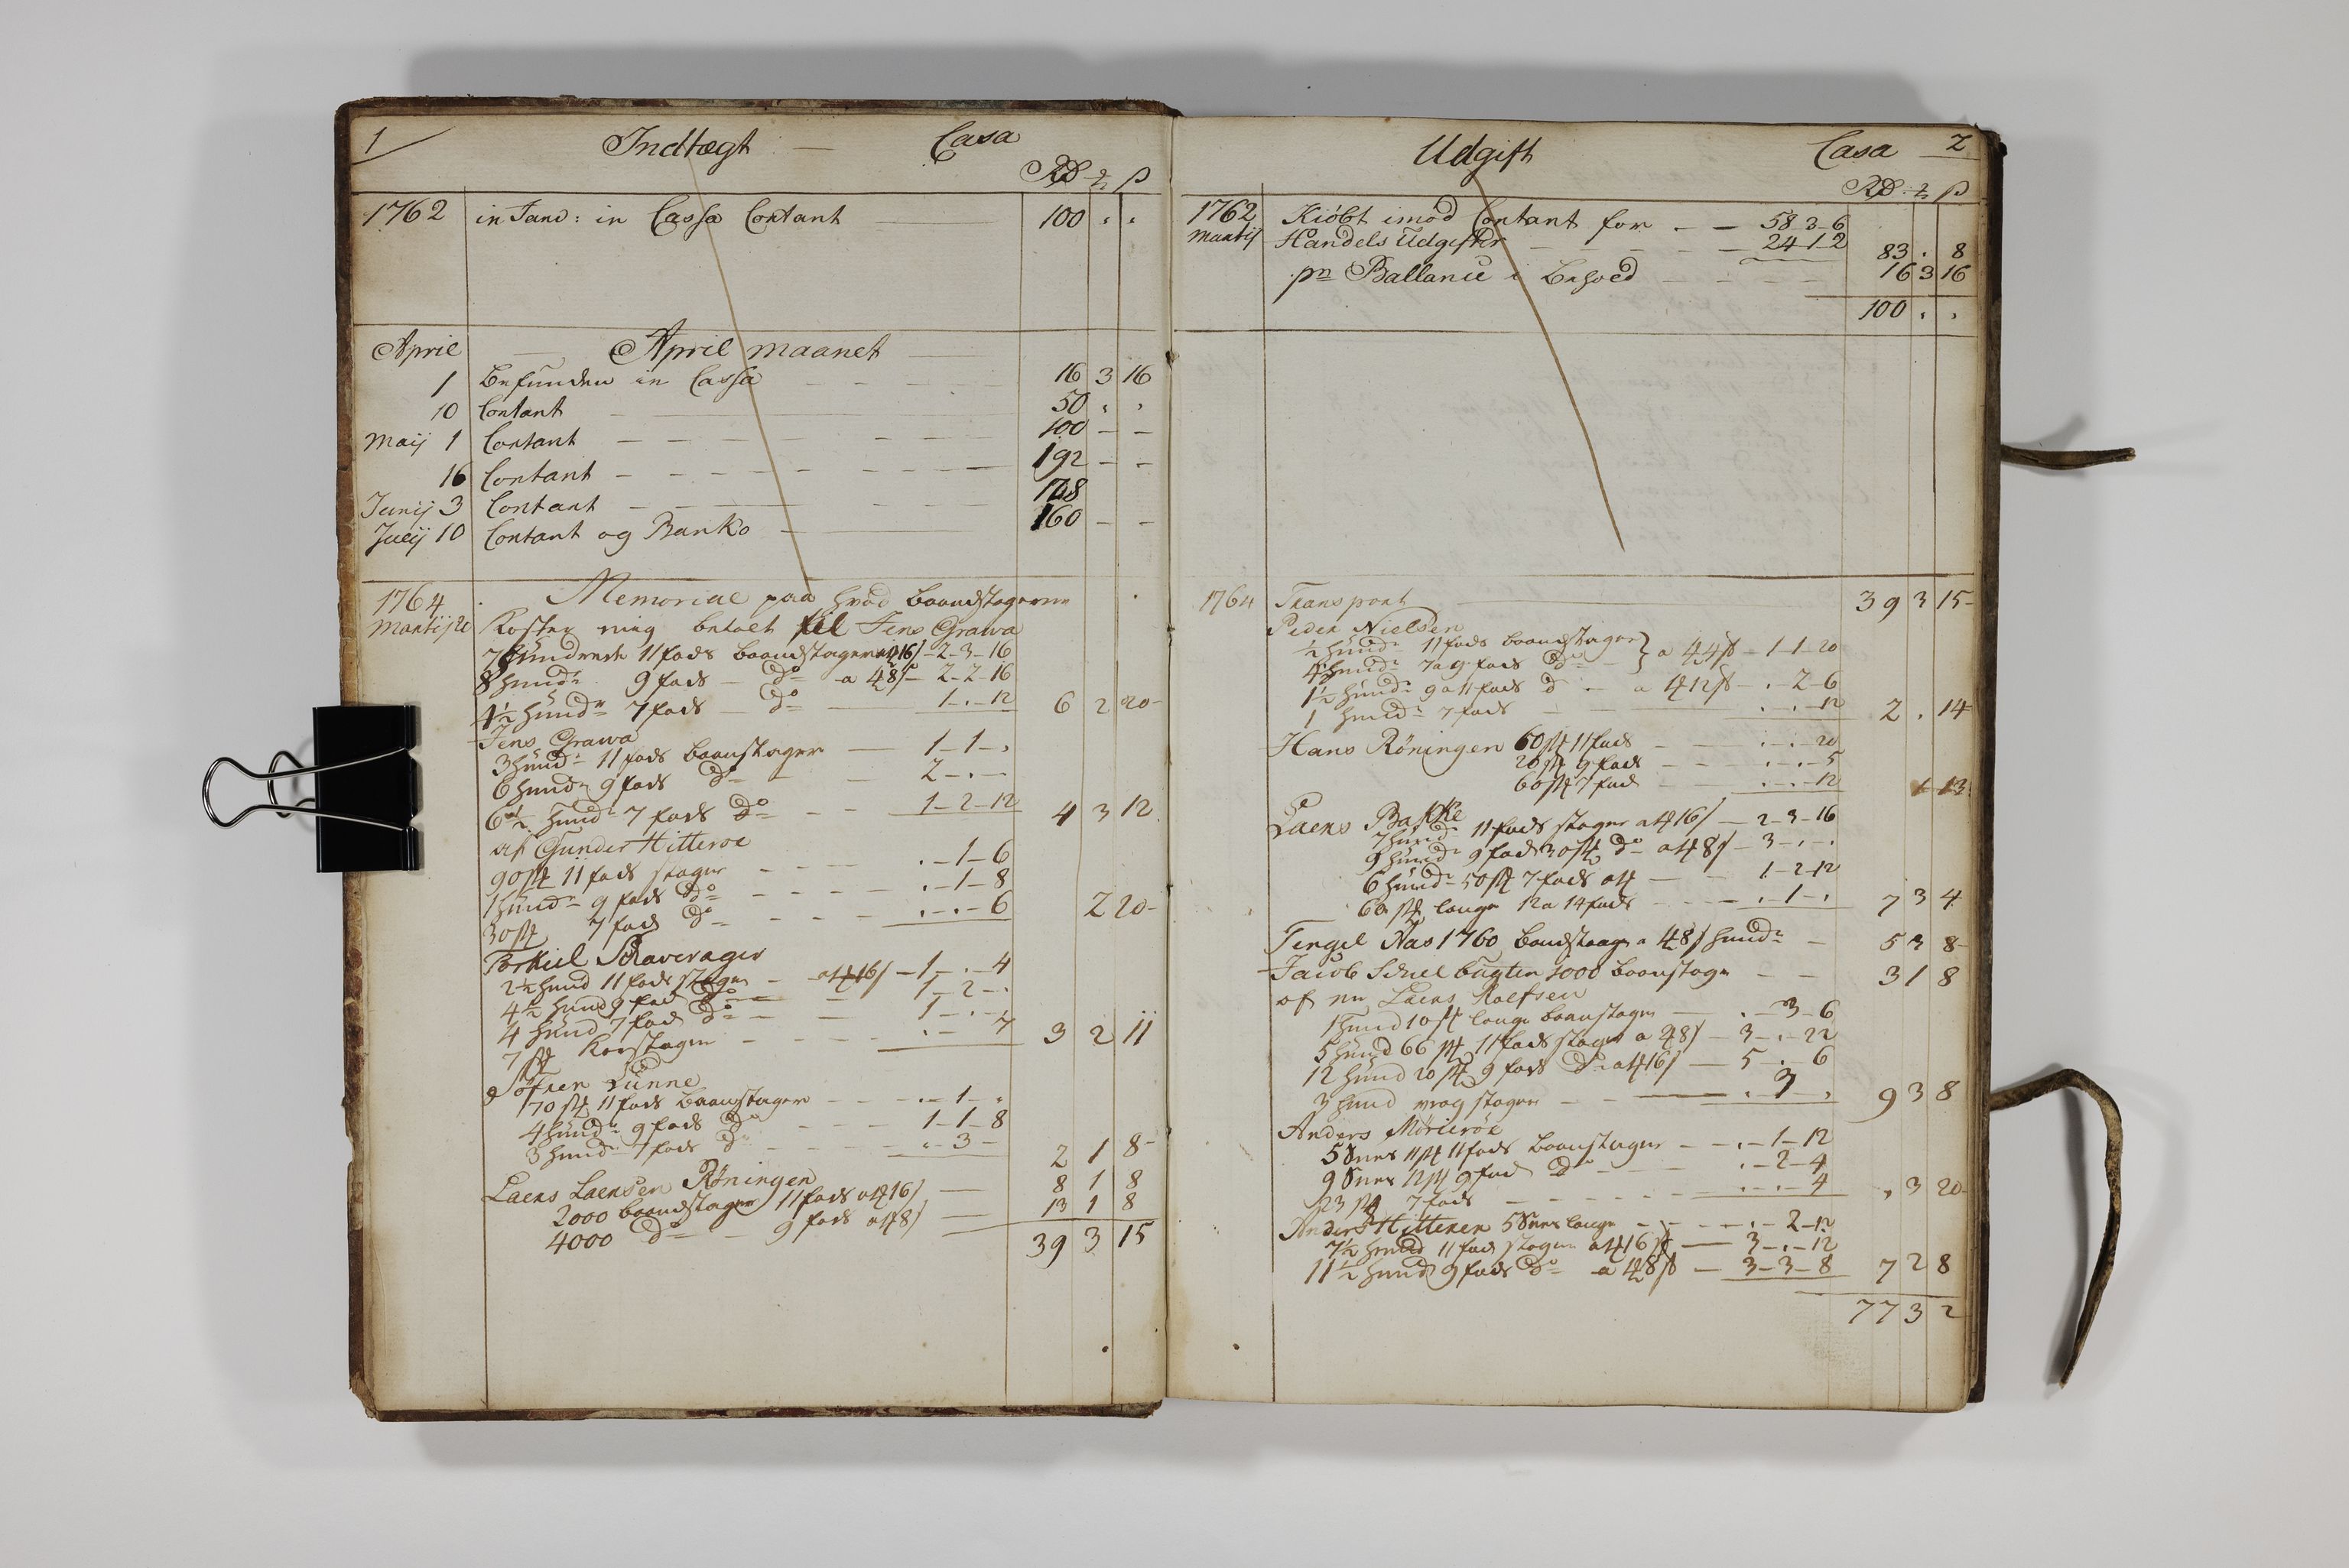 1 Indtægt — Casa
RD  ß
1762 in Janv: in Cassa Contant 100 . .
April — April maanet
1 befunden in Cassa 16 3 16
10 Contant 50 . .
Maij 1 Contant 100 – –
16 Contant 192 – –
Junij 3 Contant
Julij 10 Contant og Banko 160 – –
1764 Memorial paa hvad baandstagerne
Martij Koster mig betalt til Jens Grawa
7 hundrede 11 fods baandstager 16 ß – 2-3-16
8 hund 9 fods – do – a 8 ß – 2-2-16
4½ hund 7 fods – do – 1-.-12 6 2 20-
Jens Grawa
3 hund 11 fods baanstager – 1-1-.
6 hund 9 fods do – 2-.-
6½ hund 7 fods do – 1-2-12 4 3 12
af Gunder Hitterøe
90 st 11 fods stager .-1-6
1 hund 9 fods do .-1-8
30 st 7 fods do .-.-6 2 20-
Torkiel
2½ hund 11 fods stager – 16 ß – 1-.-4
4½ hund 9 fod do – 1-2-.
4 hund 7 fod do – 1-.-
7 st stager .-.-7 3 2 11
Søfren Lunne
70 st 11 fods baanstager .-1-.
4 hund 9 fods do 1-1-8
3 hund 7 fods do .-3- 2 1 8-
Laers Laersen Røningen
2000 baandstager 11 fods 16 ß – 8 1 8
4000 do – 9 fods 8 ß – 13 1 8
39 3 15
Udgift Casa 2
RD  ß
1762 Kiøbt imod Contant for – – 58-3-6
Martij Handels Udgifter – 24-1-2 83 . 8
pr Ballance i behold 16 3 16
100 . .
1764 Transport 39 3 15-
Peder Nielsen
½ hund 11 fods baandstager } a 4 ß – 1-1-20
4 hund 7 a 9 fods do
1½ hund 9 a 11 fods d – a 12 ß – .-2-6
1 hund 7 fods .-.-12 2 . 14
Hans Røningen 60 st 11 fods .-.-20
20 st 9 fods .-.-5
60 st 7 fod .-.-12 1 13
Laers Bakke
7 hund 11 fods stager 16 ß – 2-3-16
9 hund 9 fod 30 st do 8 ß – 3-.-.
6 hund 50 st 7 fods 1-2-12
60 st lange 12 a 14 fods .-1-. 7 3 4
1760 a 8 ß hund – 5 3 8-
Jacob 1000 baanstage 3 1 8
af Laers Roelfsen
1 hund 10 st lange baanstager .-3-6
5 hund 66 st 11 fods stager a 8 ß – 3-.-22
12 hund 20 st 9 fods do 16 ß – 5-.-6
3 hund vrag stager 9 3 8
Anders
5 Snes 11 st 11 fods baanstager .-1-12
9 Snes 12 st 9 fod do .-2-4
23 st 7 fods .-.-4 . 3 20
Anders Hitterøe 5 Snes lange .-2-12
7½ hund 11 fods stager 16 ß – 3-.-12
11½ hund 9 fods do – a 8 ß – 3-3-8 7 2 8
77 3 2